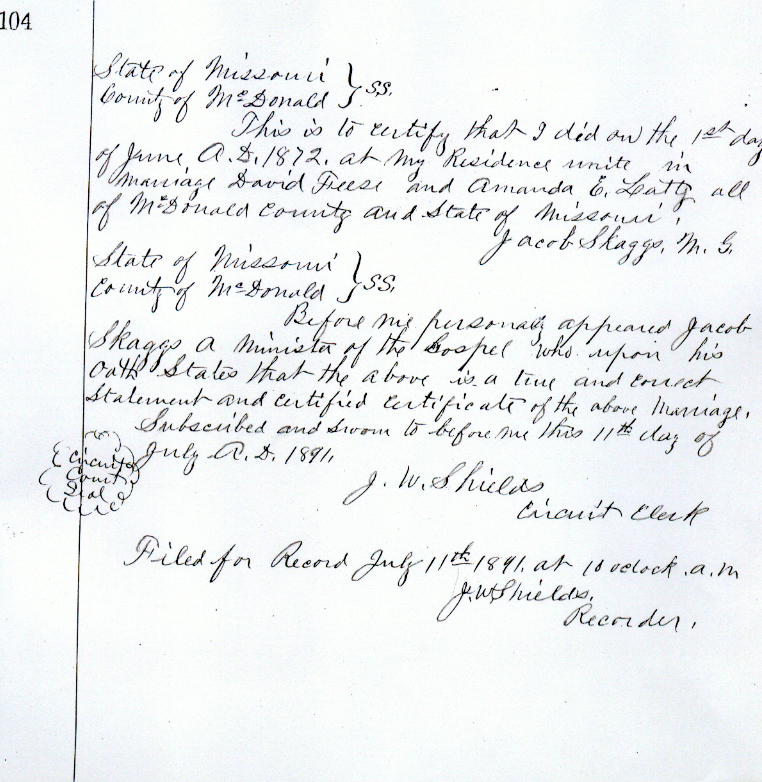 104
State of Missouri } SS.
County of McDonald
This is to certify that I did on the 1st day
of June A.D. 1872. at my Residence unite in
Marriage David Freese and Amanda E. Latty all
of McDonald County and State of Missouri.
Jacob Skaggs, M. G.
State of Missouri } SS.
County of McDonald
Before me personaly appeared Jacob
Skaggs a Minister of the Gospel who upon his
Oath States that the above is a true and correct
Statement and certified certificate of the above Marriage.
Subscribed and sworn to before me this 11th day of
July A.D. 1891.
Circuit
Court
Seal
J. W. Shields
Circuit Clerk
Filed for Record July 11th 1891. at 10 oclock a.m
J.W Shields.
Recorder.